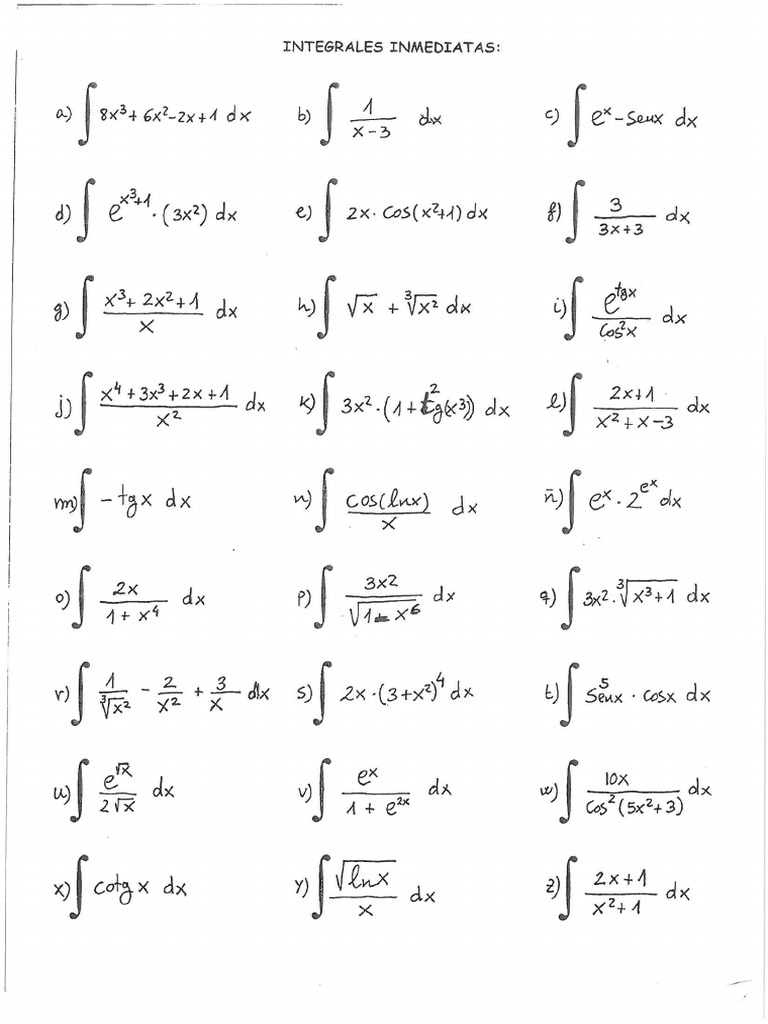 INTEGRALES INMEDIATAS:
a) ∫ 8x³+6x²-2x+1 dx b) ∫ 1/(x-3) dx c) ∫ eˣ-senx dx
d) ∫ e^(x³+1)·(3x²) dx e) ∫ 2x·cos(x²+1) dx f) ∫ 3/(3x+3) dx
g) ∫ (x³+2x²+1)/x dx h) ∫ √x + ∛x² dx i) ∫ e^(tgx)/cos²x dx
j) ∫ (x⁴+3x³+2x+1)/x² dx k) ∫ 3x²·(1+tg²(x³)) dx l) ∫ (2x+1)/(x²+x-3) dx
m) ∫ -tgx dx n) ∫ cos(lnx)/x dx ñ) ∫ eˣ·2^(eˣ) dx
o) ∫ 2x/(1+x⁴) dx p) ∫ 3x2/√(1-x⁶) dx q) ∫ 3x²·∛(x³+1) dx
r) ∫ 1/∛x² - 2/x² + 3/x dx s) ∫ 2x·(3+x²)⁴ dx t) ∫ sen⁵x·cosx dx
u) ∫ e^(√x)/(2√x) dx v) ∫ eˣ/(1+e^(2x)) dx w) ∫ 10x/cos²(5x²+3) dx
x) ∫ cotgx dx y) ∫ √(lnx)/x dx z) ∫ (2x+1)/(x²+1) dx